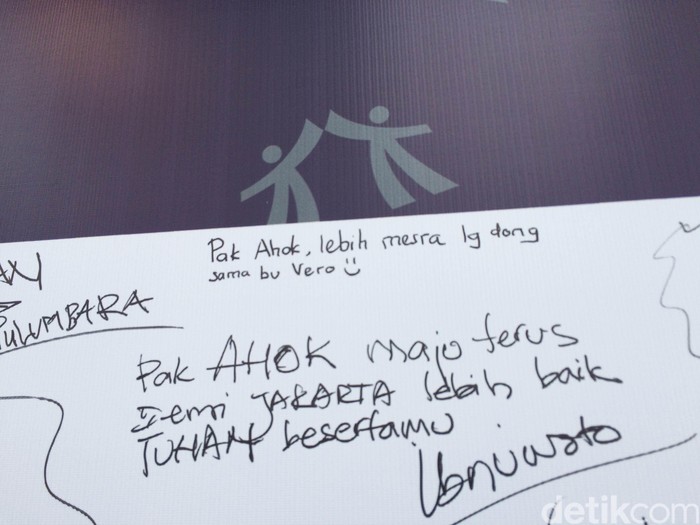 Pak Ahok, lebih mesra lg dong
sama bu Vero
PULUMBARA
Pak AHOK maju terus
Demi JAKARTA lebih baik
TUHAN besertamu
detikcom